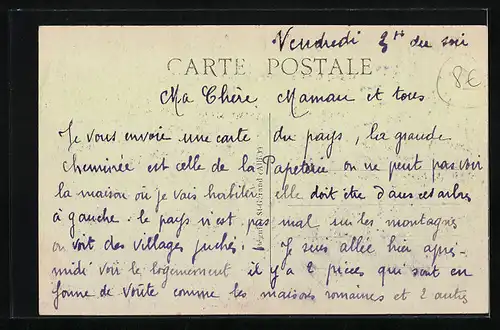 Vendredi 3H du soir
CARTE POSTALE
8€
Ma Chère Maman et tous
Je vous envoie une carte du pays, la grande
cheminée est celle de la Papeterie on ne peut pas voir
la maison où je vais habiter elle doit être dans cet arbres
à gauche. le pays n'est pas mal sur les montagnes
on voit des villages juchés. Je suis allée hier après-
midi voir le logement il y a 2 pièces qui sont en
forme de voute comme les maisons romaines et 2 autres